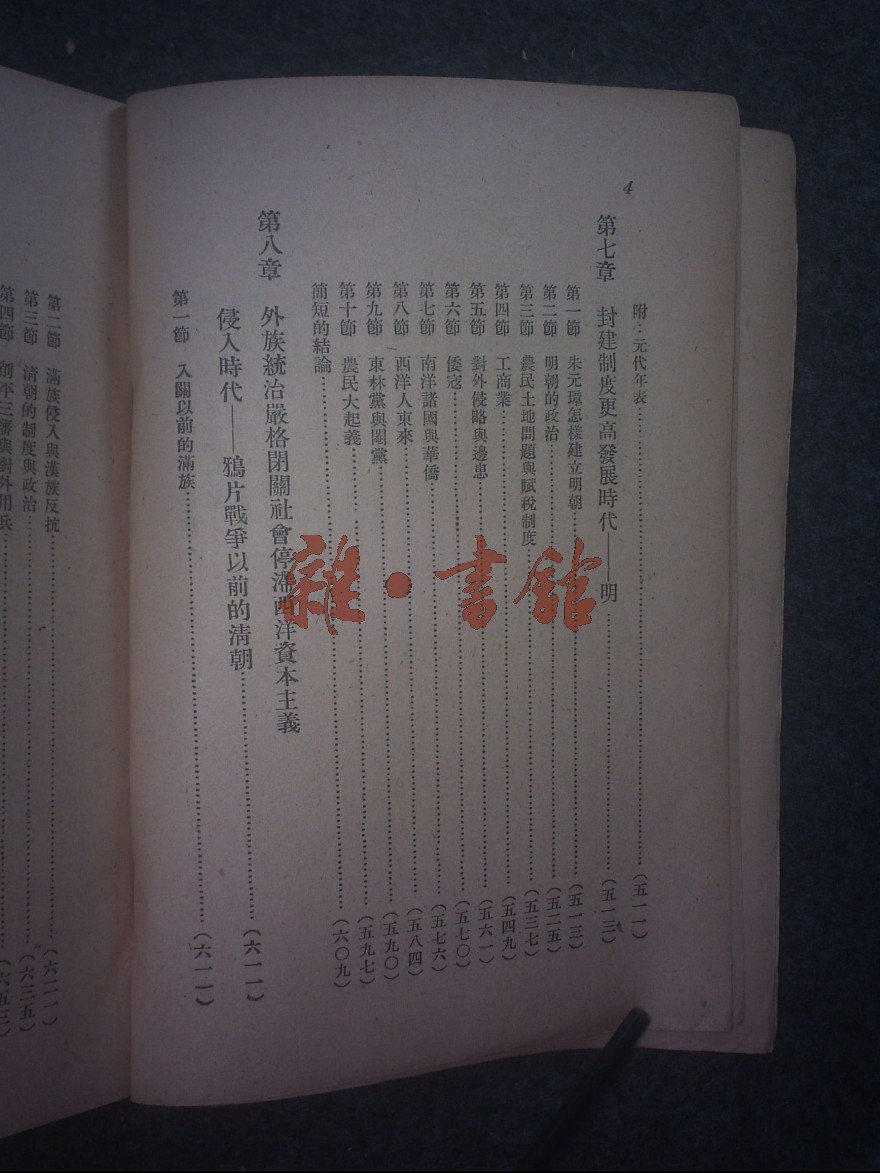 4
附：元代年表……（五一一）
第七章　封建制度更高發展時代——明……（五一三）
第一節　朱元璋怎樣建立明朝……（五一三）
第二節　明朝的政治……（五二五）
第三節　農民土地問題與賦稅制度……（五三七）
第四節　工商業……（五四九）
第五節　對外侵略與邊患……（五六一）
第六節　倭寇……（五七〇）
第七節　南洋諸國與華僑……（五七六）
第八節　西洋人東來……（五八四）
第九節　東林黨與閹黨……（五九〇）
第十節　農民大起義……（五九七）
簡短的結論……（六〇九）
第八章　外族統治嚴格閉關社會停滯西洋資本主義
侵入時代——鴉片戰爭以前的清朝……（六一一）
第一節　入關以前的滿族……（六一一）
第二節　滿族侵入與漢族反抗……（六二一）
第三節　清朝的制度與政治……（六三五）
第四節　削平三藩與對外用兵……（六五三）
雜·書館